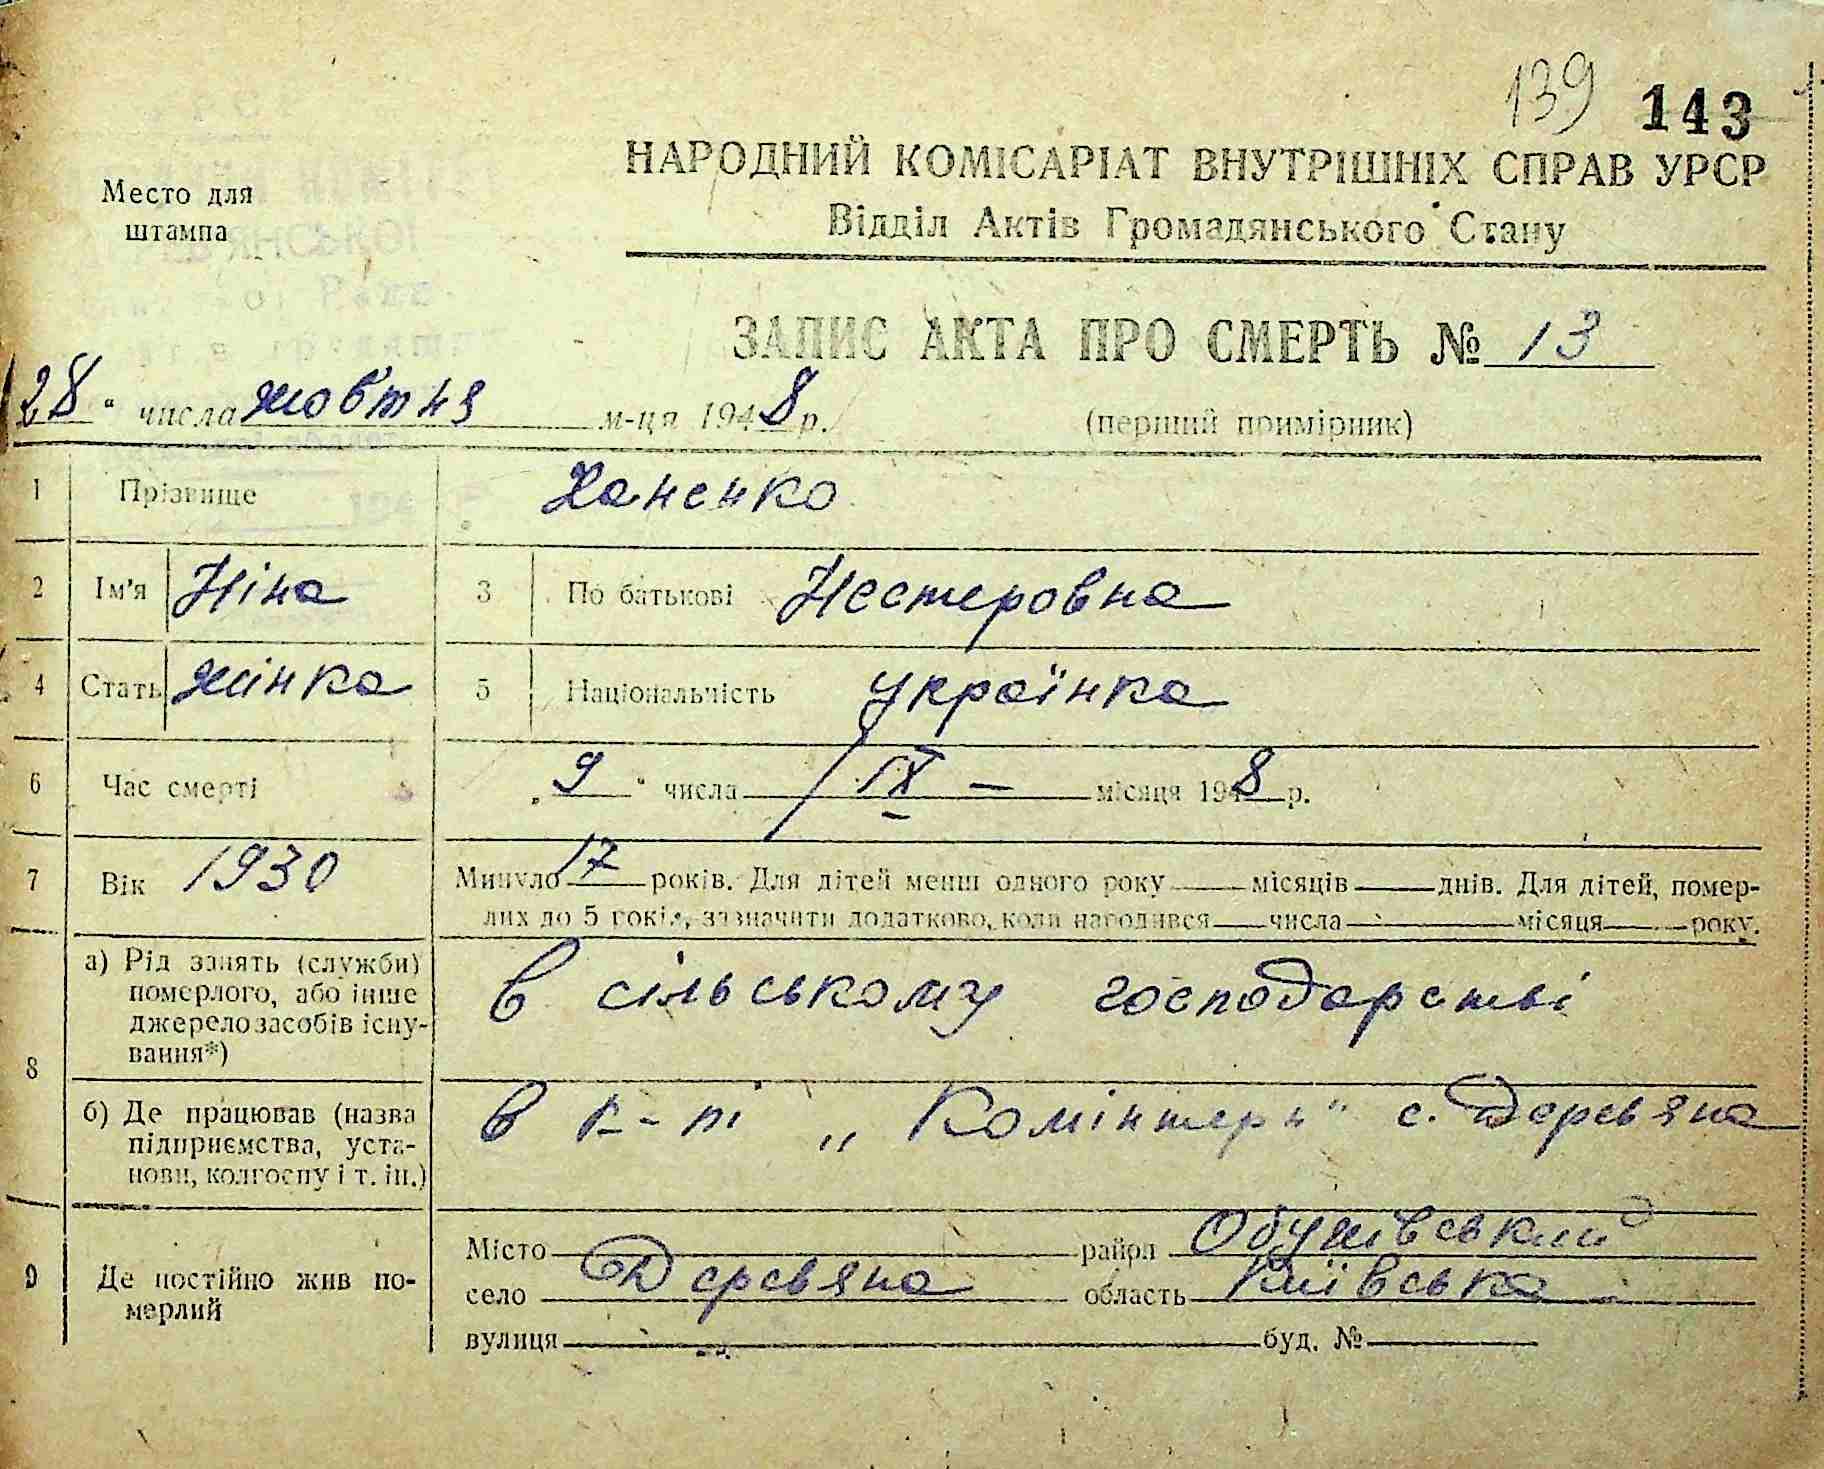 139 143
НАРОДНИЙ КОМІСАРІАТ ВНУТРІШНІХ СПРАВ УРСР
Место для
штампа
Відділ Актів Громадянського Стану
ЗАПИС АКТА ПРО СМЕРТЬ № 13
28 " числа жовтня м-ця 1948 р. (перший примірник)
1 Прізвище Ханенко
2 Ім'я Ніна 3 По батькові Нестеровна
4 Стать жінка 5 Національність українка
6 Час смерті „ 9 " числа IX – місяця 1948 р.
7 Вік 1930 Минуло 17 років. Для дітей менш одного року місяців днів. Для дітей, помер-
лих до 5 років, зазначити додатково, коли народився числа місяця року.
8 а) Рід занять (служби)
померлого, або інше
джерело засобів існу-
вання*)
в сільському господарстві
б) Де працював (назва
підприємства, уста-
нови, колгоспу і т. ін.)
в к-пі „Комінтерн" с. Деревяна
9 Де постійно жив по-
мерлий
Місто район Обухівський
село Деревяна область Київська
вулиця буд. №